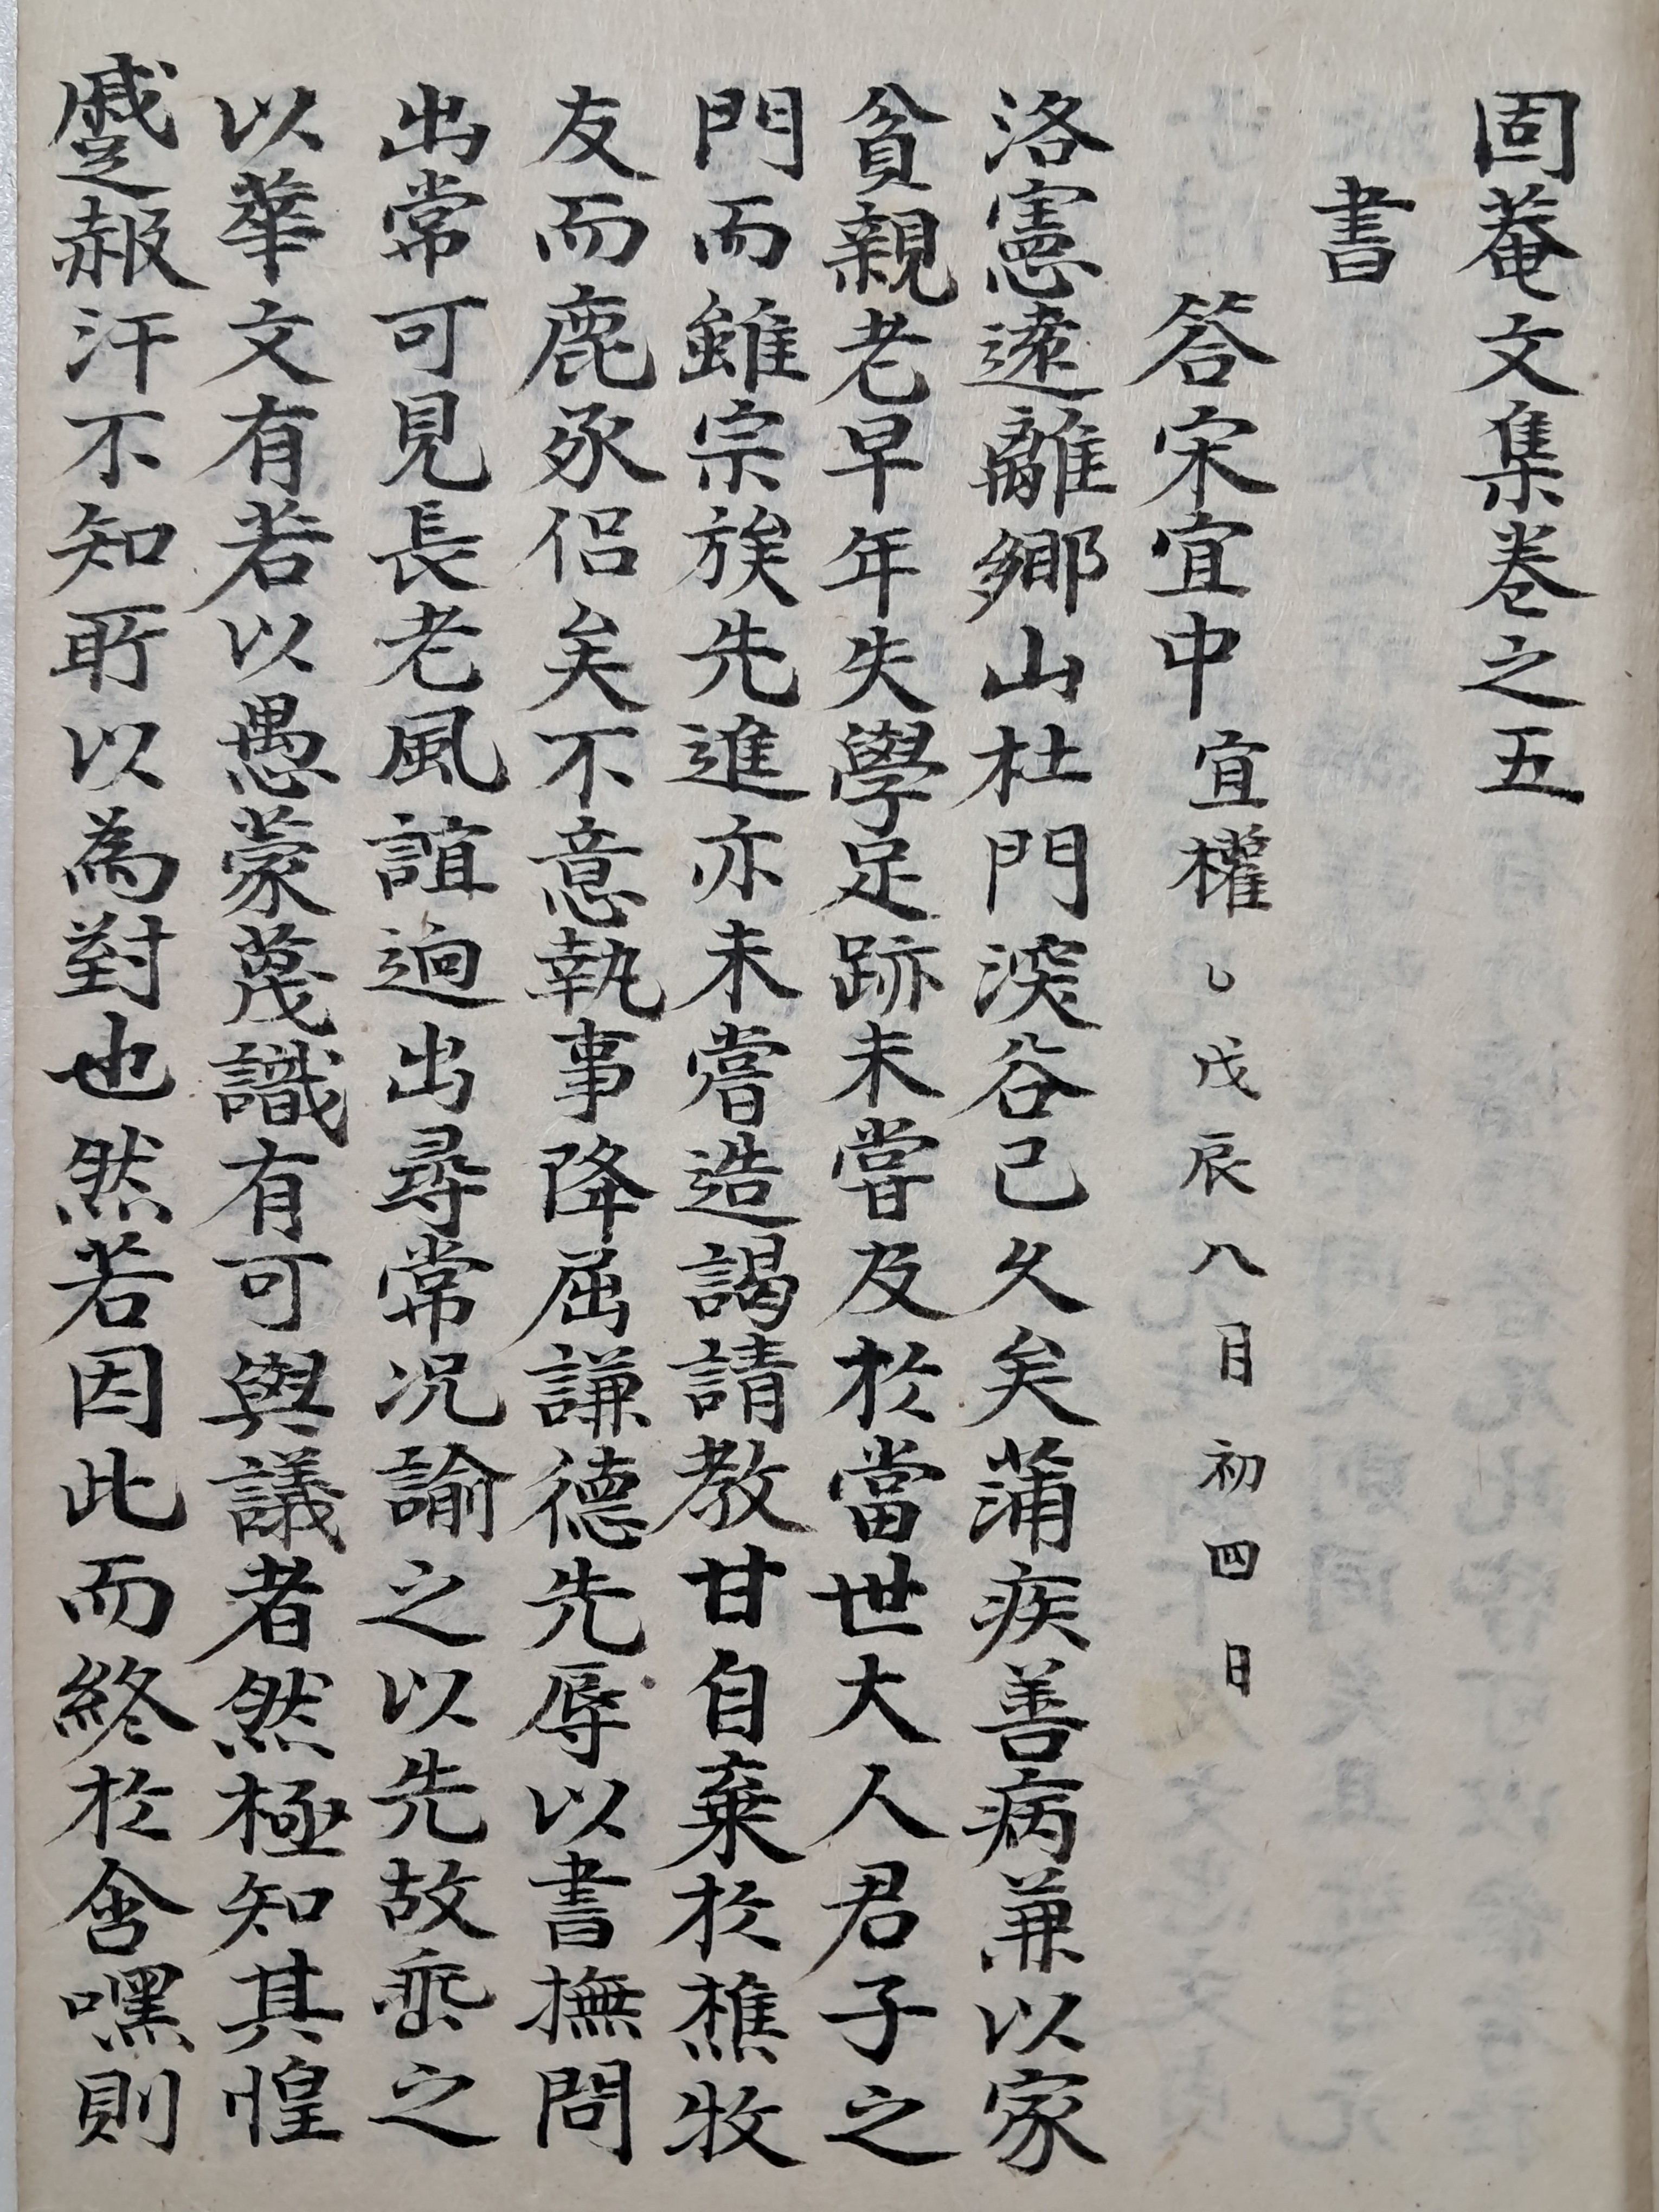 固菴文集卷之五
書
答宋宜中宜權乚戊辰八月初四日
洛憲遠離鄉山杜門深谷已久矣蒲疾善病兼以家
貧親老早年失學足跡未嘗及於當世大人君子之
門而雖宗族先進亦未嘗造謁請教甘自棄於樵牧
友而鹿豕侶矣不意執事降屈謙德先辱以書撫問
出常可見長老風誼逈出尋常況諭之以先故重之
以華文有若以愚蒙蔑識有可與議者然極知其惶
蹙赧汗不知所以為對也然若因此而終於含嘿則